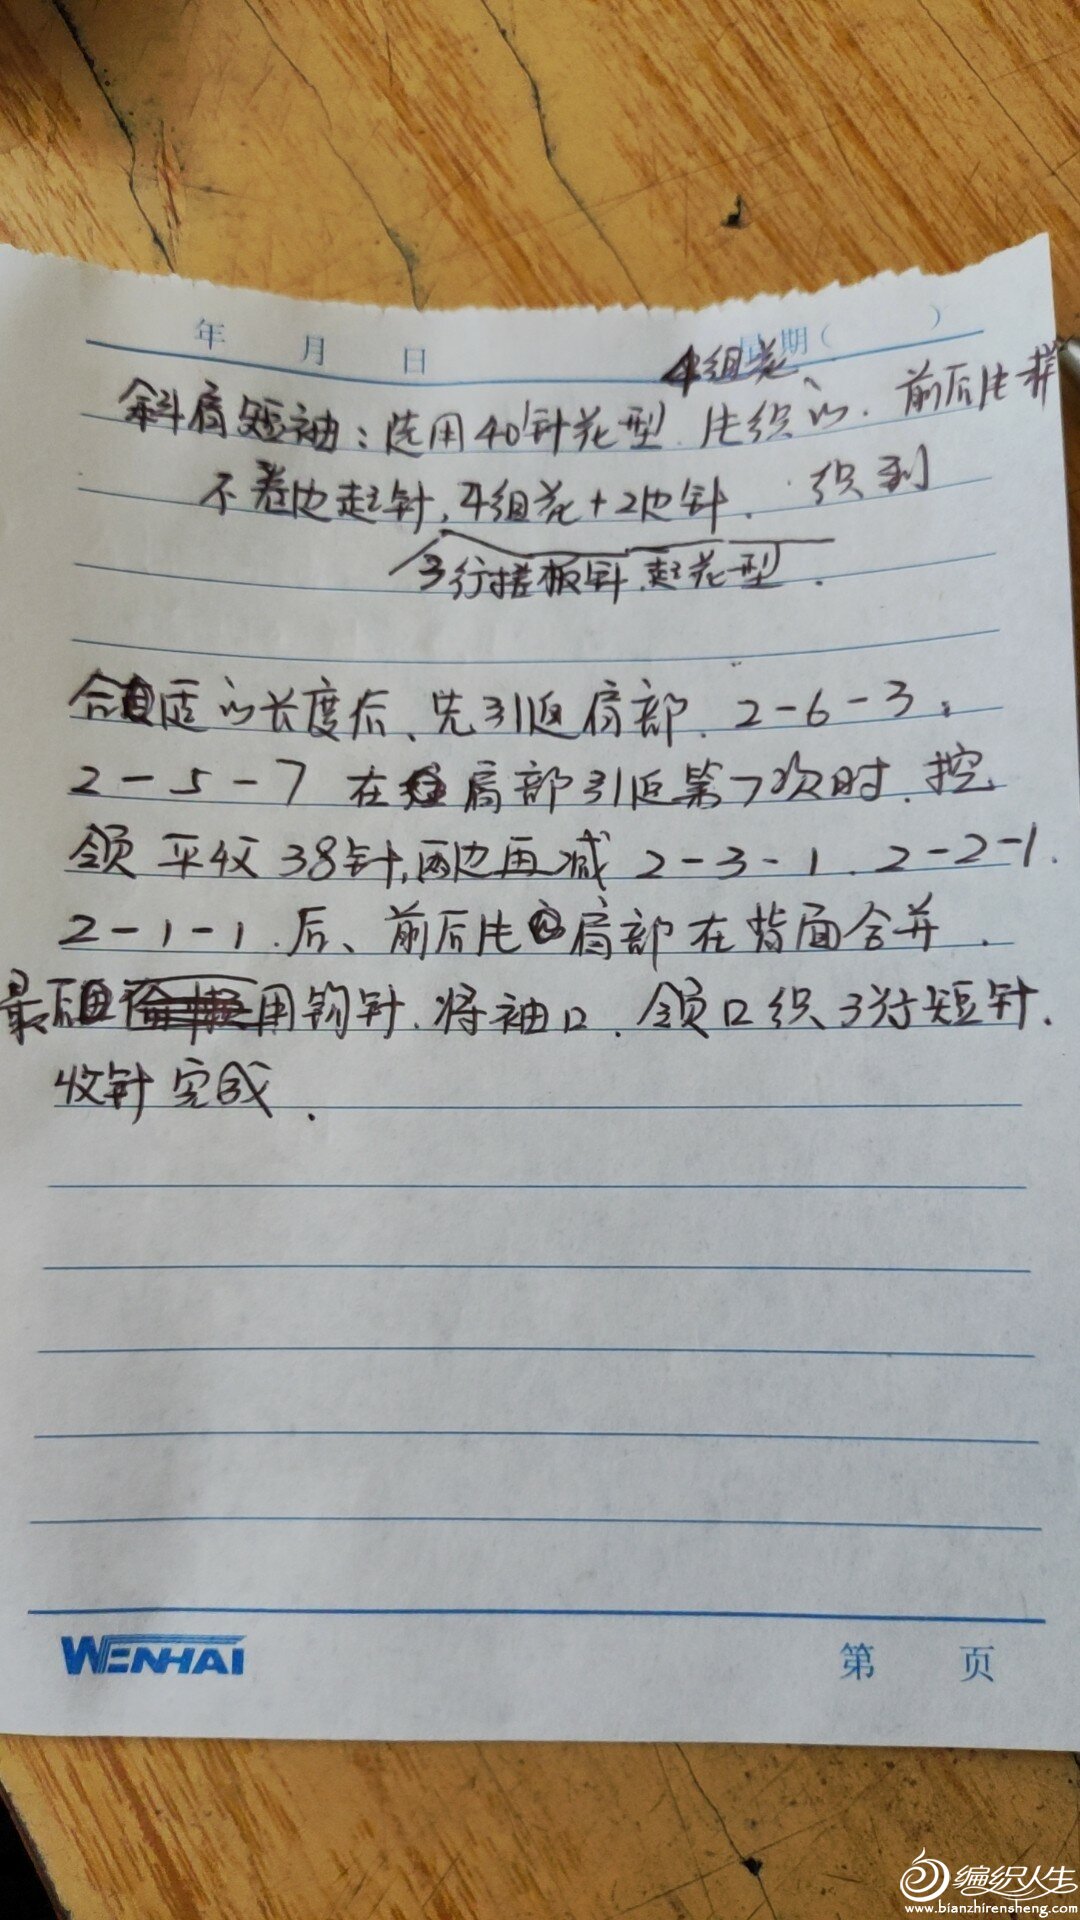 年 月 日 星期( )
4组花
斜肩短袖:选用40针花型.片织的.前后片一样
不卷边起针,4组花+2边针. 织到
3行搓板针.起花型.
合适的长度后、先引返肩部.2-6-3,
2-5-7 在肩部引返第7次时.挖
领平收38针,两边再减2-3-1.2-2-1.
2-1-1.后、前后片肩部在背面合并.
最后用钩针.将袖口.领口织3行短针.
收针完成.
WENHAI 第 页
编织人生
www.bianzhirensheng.com